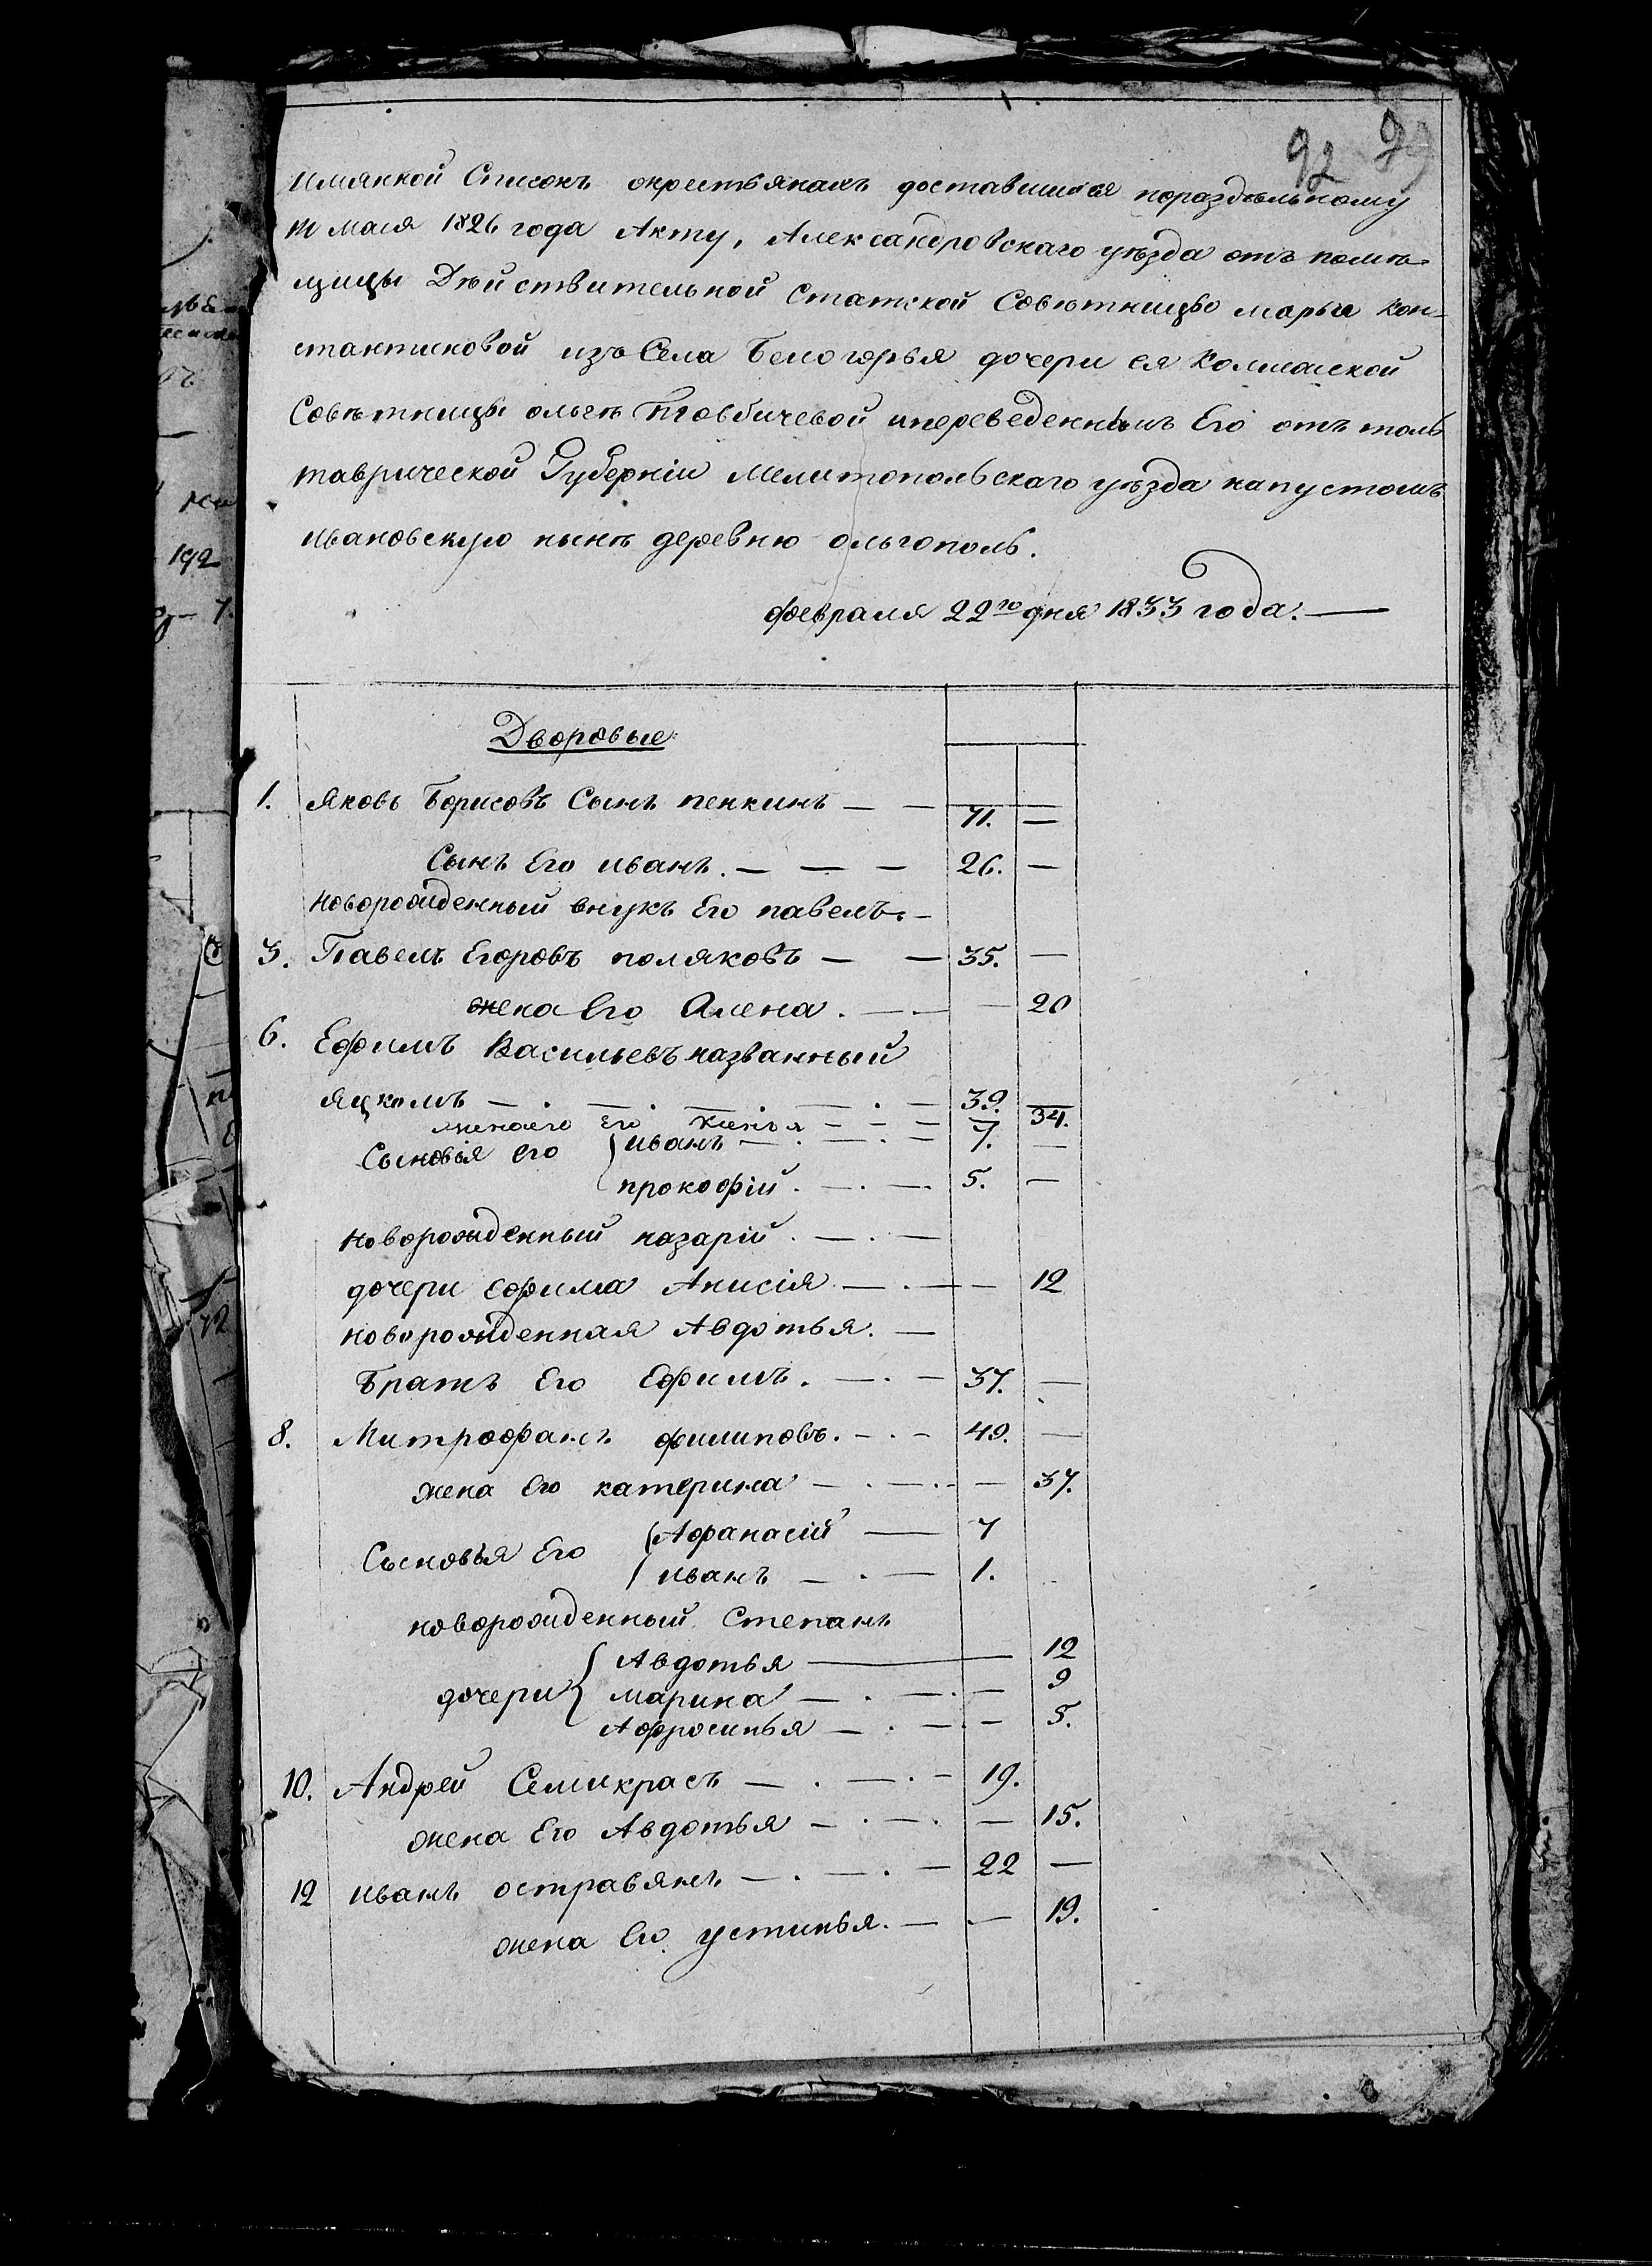 92 99
Имянной Списокъ окрестьянахъ доставшихся пораздѣльному
маія 1826 года Акту, Александровскаго уѣзда отъ помѣ-
щицы Дѣйствительной Статской Совѣтницы марьи Кон-
стантиновой изъ Села Белогорья дочери ея Колежской
Совѣтницы ольги ипереведеннымъ Его отъ толь
таврической Губерніи Мелитопольскаго уѣзда напустошь
ивановскую нынѣ деревню ольгополь.
февраля 22го дня 1833 года.
Дворовые
1. Яковъ Борисовъ Сынъ пенкинъ — — 71. —
Сынъ Его иванъ. — — — 26. —
новорожденный внукъ Его павелъ. —
3. Павелъ Егоровъ поляковъ — — 35. —
жена Его Алена. — — — 20
6. Ефимъ Васильевъ названный
яцкомъ — . — . — . — . — 39. —
Его — — — 34.
Сыновья его { иванъ — . — . — 7. —
прокофій. — . — 5. —
новорожденный назарій. — . —
дочери ефима Анисія — . — — 12
новорожденная Авдотья. —
Братъ Его Ефимъ. — . — 37. —
8. Митрофанъ филиповъ. — . — 49. —
жена Его катерина — . — . — 37.
Сыновья Его { Афанасій — 7
иванъ — . — 1.
новорожденный Степанъ
{ Авдотья — 12
дочери { марина — . — . — 9
Афросинья — . — . — 5.
10. Андрей Семикрасъ — . — . — 19.
жена Его Авдотья — . — . — 15.
12 иванъ остравянъ — . — . — 22 —
жена Его устинья. — . — 19.
192